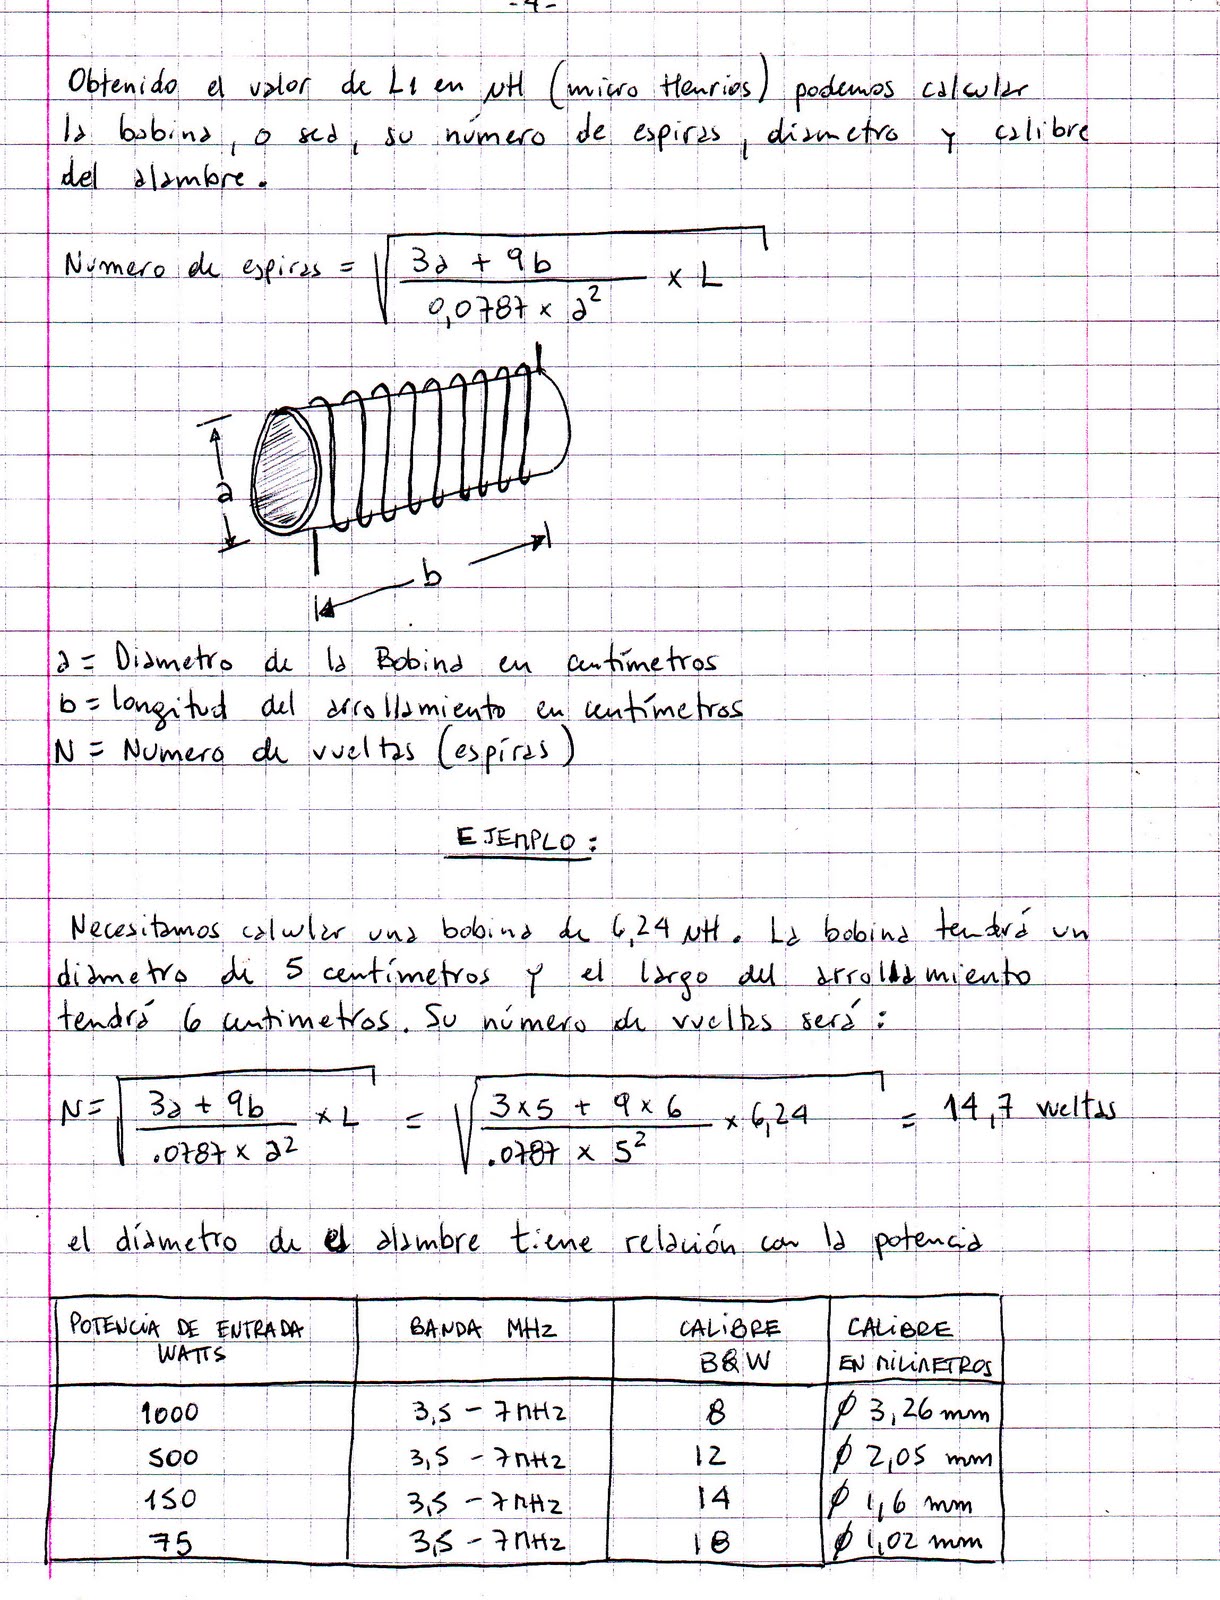 -4-
Obtenido el valor de L1 en µH (micro Henrios) podemos calcular
la bobina, o sea, su número de espiras, diámetro y calibre
del alambre.
Numero de espiras = √ 3a + 9b / 0,0787 × a² × L
a
b
a = Diámetro de la Bobina en centímetros
b = longitud del arrollamiento en centímetros
N = Numero de vueltas (espíras)
EJEMPLO:
Necesitamos calcular una bobina de 6,24 µH. La bobina tendrá un
diámetro de 5 centímetros y el largo del arrollamiento
tendrá 6 centimetros. Su número de vueltas será:
N = √ 3a + 9b / .0787 × a² × L = √ 3×5 + 9×6 / .0787 × 5² × 6,24 = 14,7 vueltas
el diámetro de el alambre tiene relación con la potencia
POTENCIA DE ENTRADA WATTS BANDA MHz CALIBRE B&W CALIBRE EN MILIMETROS
1000 3,5 - 7 MHz 8 ϕ 3,26 mm
500 3,5 - 7 MHz 12 ϕ 2,05 mm
150 3,5 - 7 MHz 14 ϕ 1,6 mm
75 3,5 - 7 MHz 18 ϕ 1,02 mm